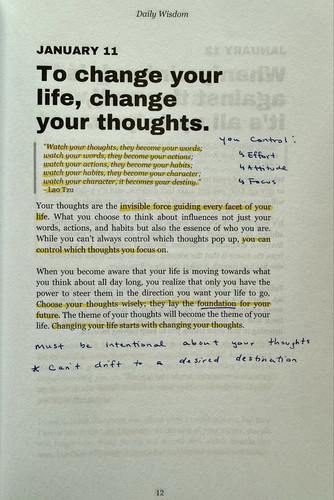 Daily Wisdom
JANUARY 11
To change your
life, change
your thoughts.
"Watch your thoughts, they become your words;
watch your words, they become your actions;
watch your actions, they become your habits;
watch your habits, they become your character;
watch your character, it becomes your destiny."
– Lao Tzu
you control:
↳ Effort
↳ Attitude
↳ Focus
Your thoughts are the invisible force guiding every facet of your
life. What you choose to think about influences not just your
words, actions, and habits but also the essence of who you are.
While you can't always control which thoughts pop up, you can
control which thoughts you focus on.
When you become aware that your life is moving towards what
you think about all day long, you realize that only you have the
power to steer them in the direction you want your life to go.
Choose your thoughts wisely; they lay the foundation for your
future. The theme of your thoughts will become the theme of your
life. Changing your life starts with changing your thoughts.
must be intentional about your thoughts
* Can't drift to a desired destination
12